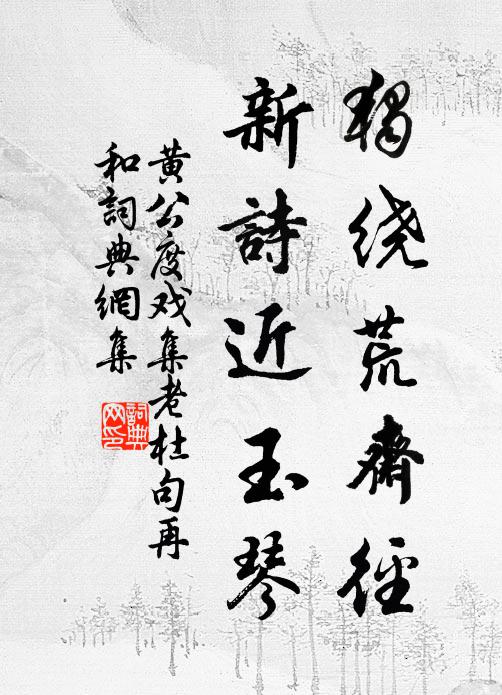 獨绕荒齋徑
新詩近玉琴
黄公度戏集老杜句再
和詞典網集
詞典
网印